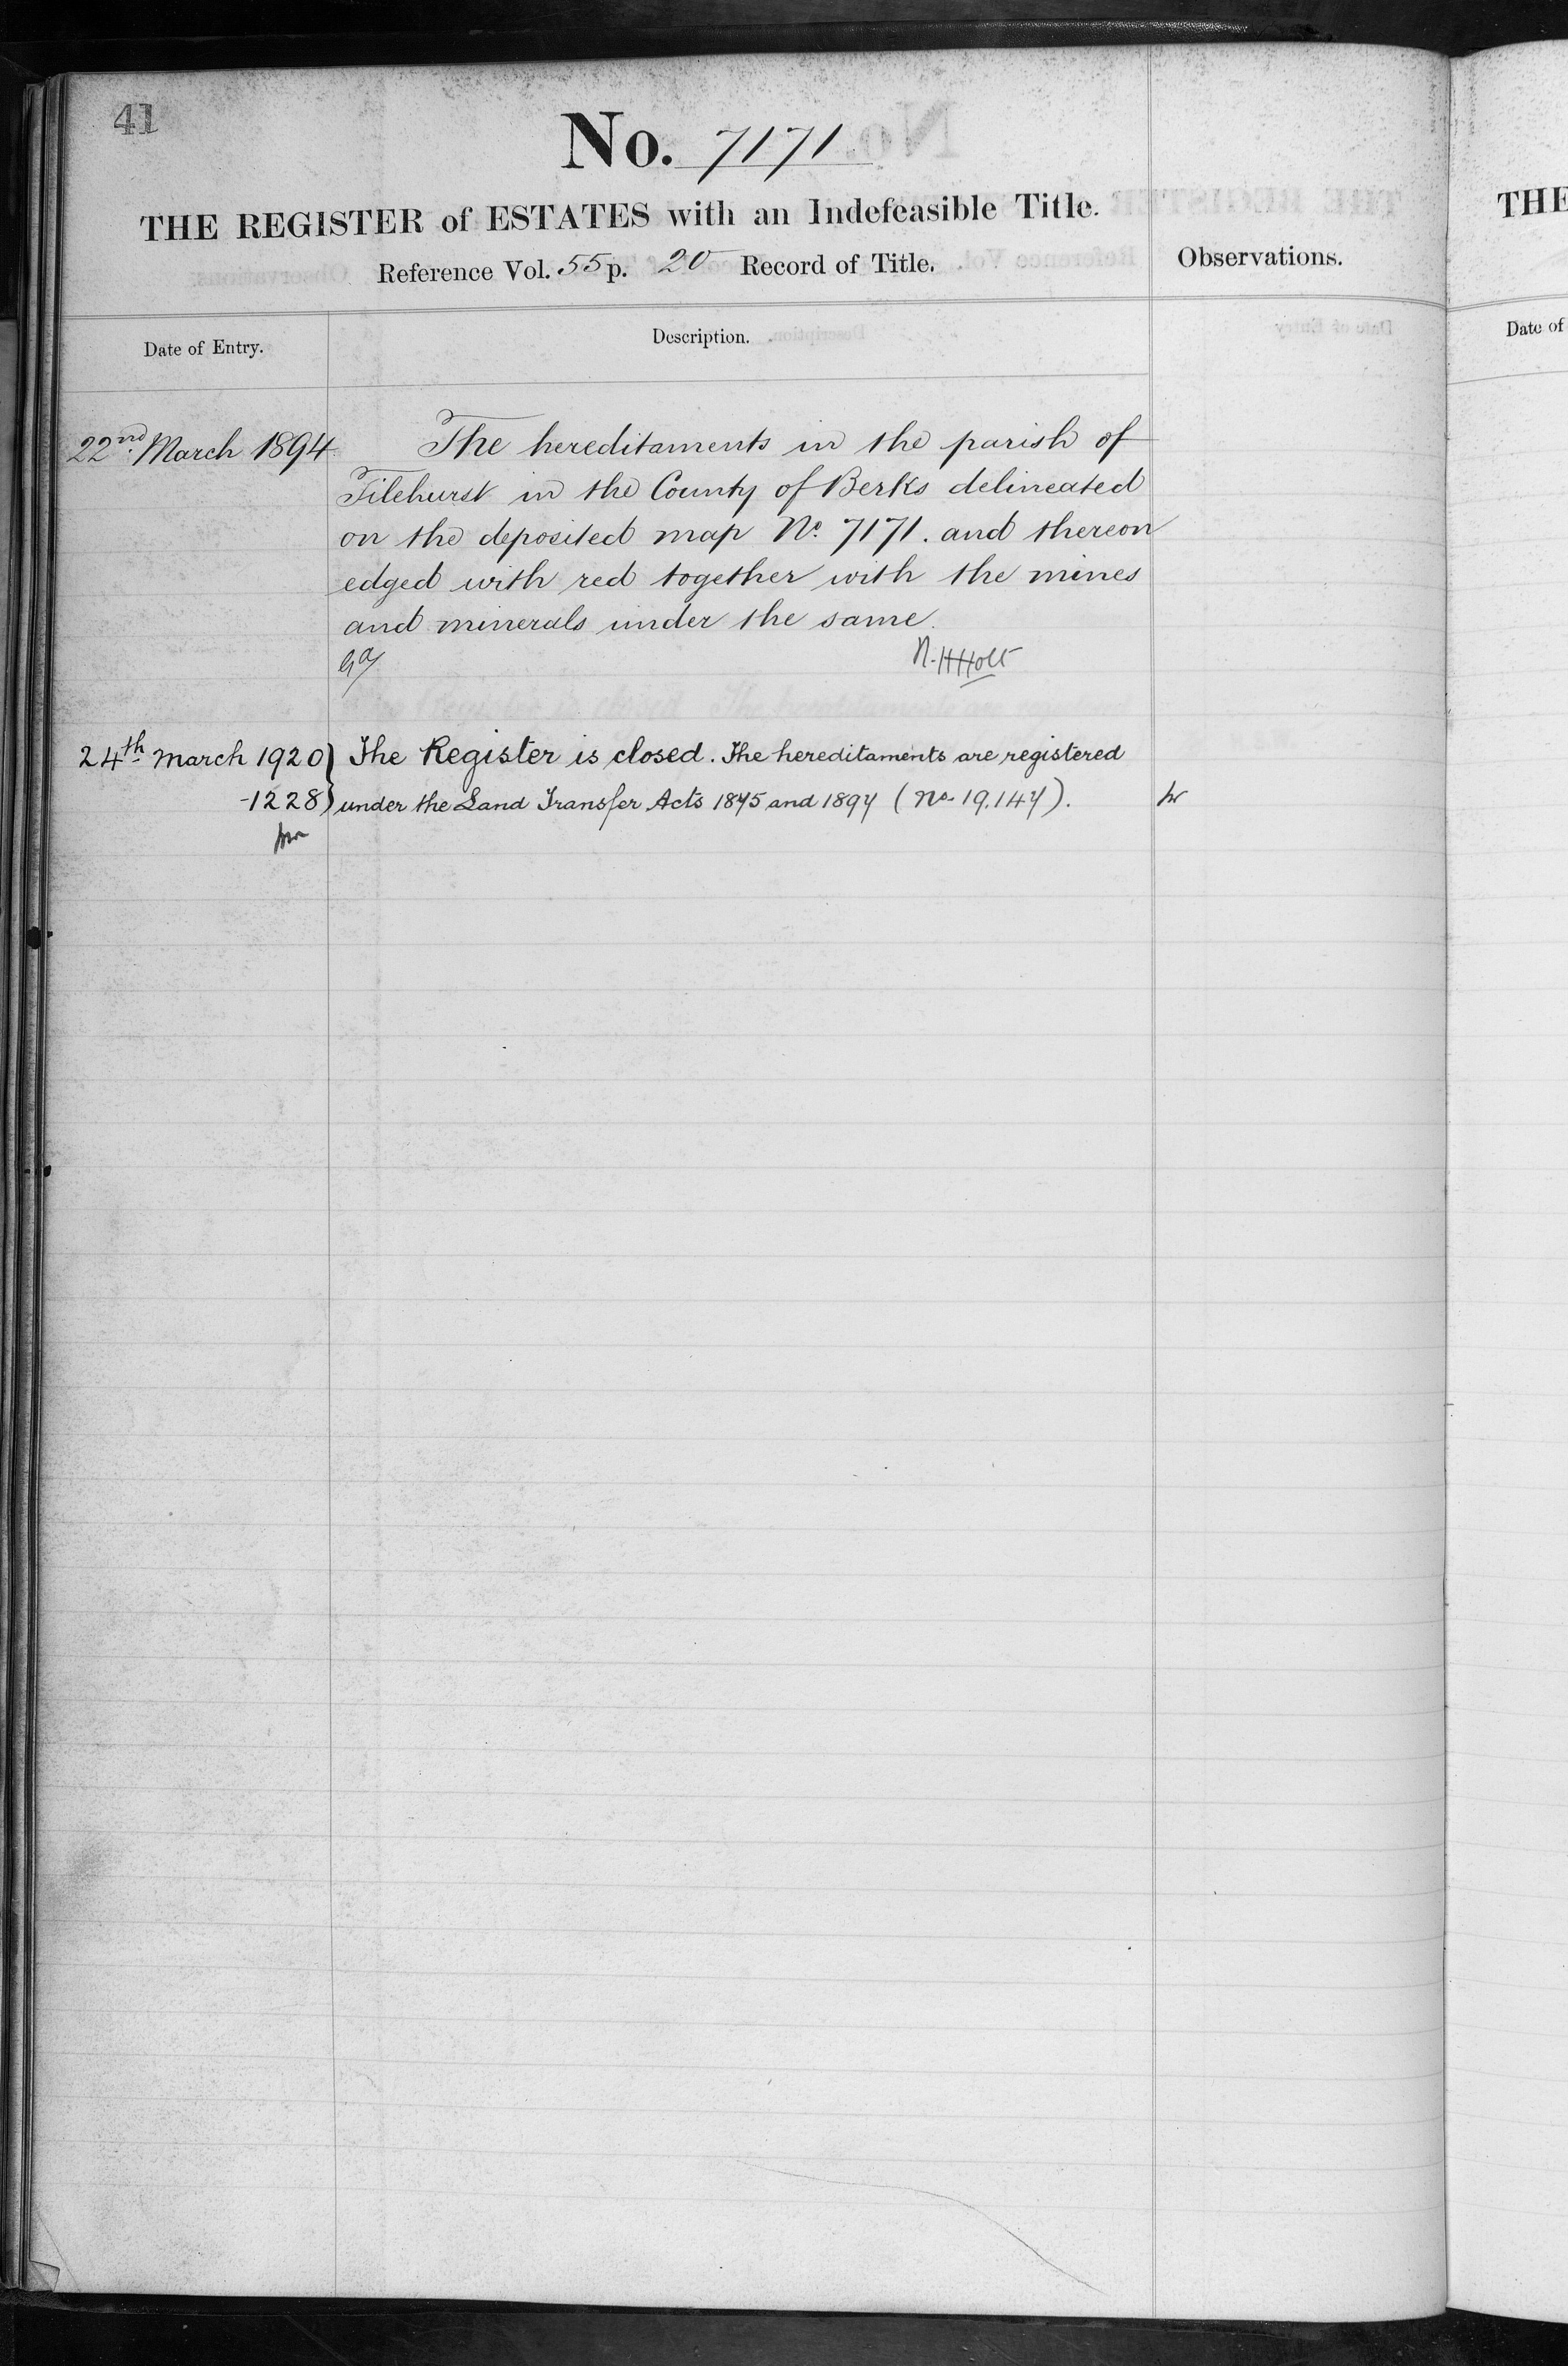 41
No. 7171
THE REGISTER of ESTATES with an Indefeasible Title.
Reference Vol. 55 p. 20 Record of Title.
Observations.
Date of Entry.
Description.
22nd March 1894
The hereditaments in the parish of
Tilehurst in the County of Berks delineated
on the deposited map No. 7171. and thereon
edged with red together with the mines
and minerals under the same.
N.HHolt
24th March 1920 } The Register is closed. The hereditaments are registered
-1228 } under the Land Transfer Acts 1875 and 1897 (No. 19.147).
THE
Date of